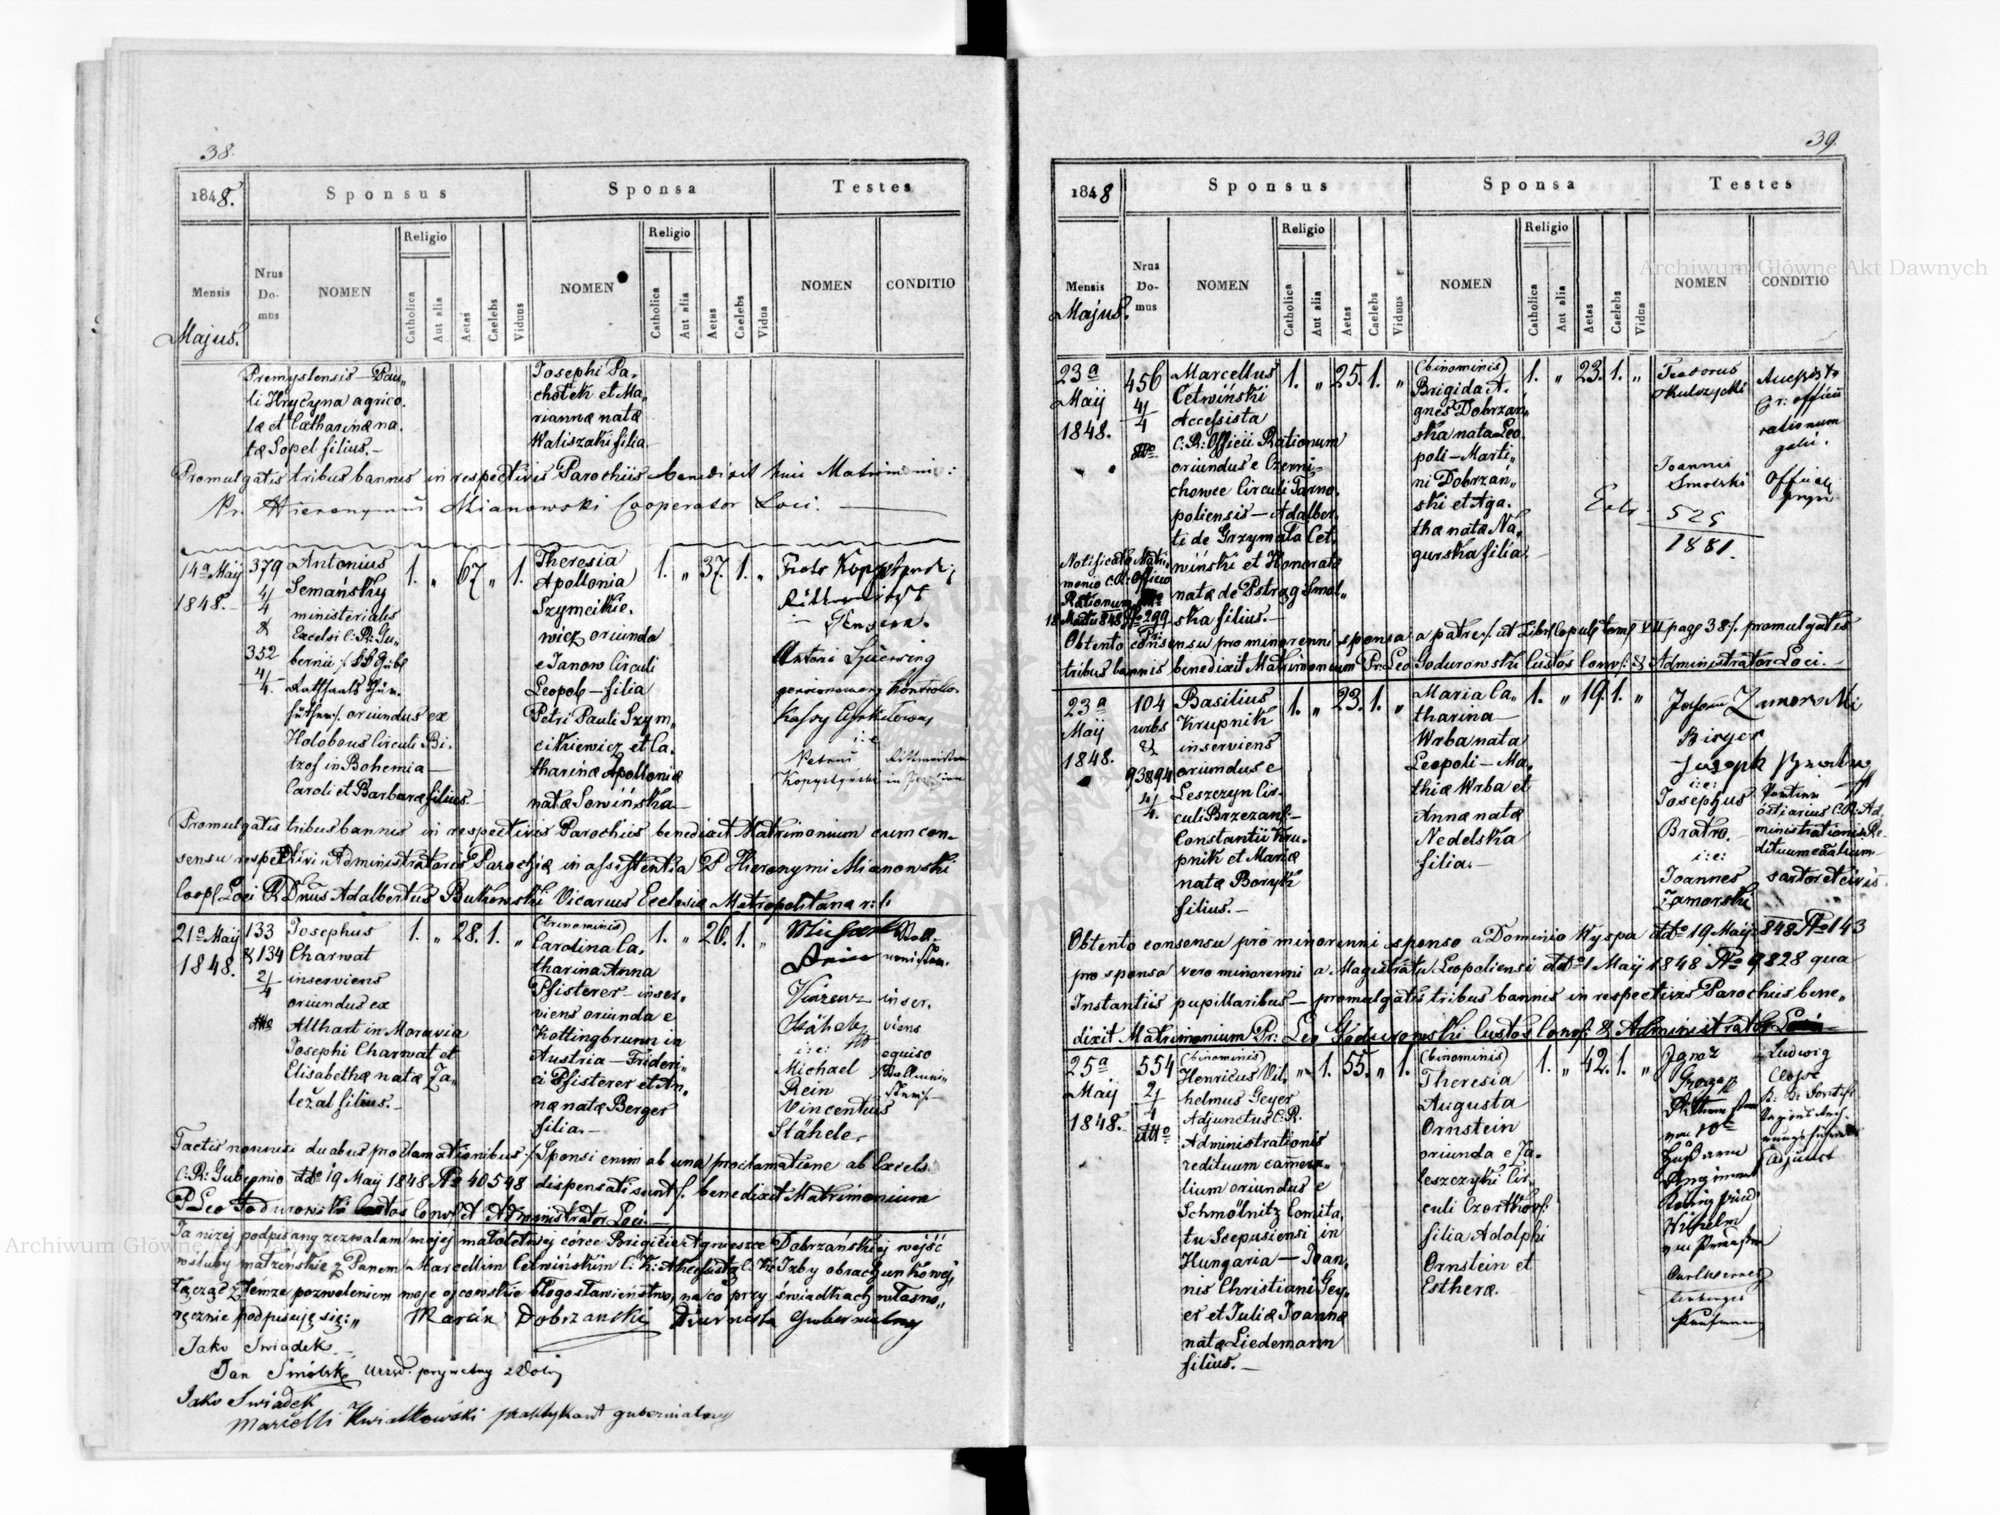 38.
1848.
Sponsus
Sponsa
Testes
Mensis
Majus.
Nrus Domus
NOMEN
Religio
Catholica
Aut alia
Aetas
Caelebs
Viduus
NOMEN
Religio
Catholica
Aut alia
Aetas
Caelebs
Vidua
NOMEN
CONDITIO
Premyslensis — Pau„
li Hrycyna agrico„
læ et Catharinæ na„
tæ Sopel filius. —
Josephi Pa„
chotek et Ma„
riannæ natæ
Waliszaki filia —
Promulgatis tribus bannis in respectivis Parochiis benedixit huic Matrimonio:
Pr. Hieronymus Mianowski Cooperator Loci.
14ª Maij
1848. —
379
4/4
&
352
4/4.
Antonius
Semánsky
ministerialis
Excelsi C: R: Gu„
bernii
oriundus ex
Holobous Circuli Bi„
tzof in Bohemia —
Caroli et Barbaræ filius. —
1. „ 67 „ 1.
Theresia
Apollonia
Szymcikie„
wicz oriunda
e Janow Circuli
Leopol — filia
Petri Pauli Szym„
cikiewicz et Ca„
tharinæ Apolloniæ
natæ Sowińska —
1. „ 37. 1. „
Antoni
pensionowany Kontrollor
Kassy Cyrkularnej
i: e:
Promulgatis tribus bannis in respectivis Parochiis benedixit Matrimonium cum con„
sensu respectivi Administratoris Parochiæ in assistentia P. Hieronymi Mianowski
Coop. Loci R. Dnus Adalbertus Butkowski Vicarius Ecclesiæ Metropolitanæ r: l:
21ª Maij
1848.
133
& 134
2/4
Josephus
Charwat
inserviens
oriundus ex
Althart in Moravia
Josephi Charwat et
Elisabethæ natæ Za„
ležal filius. —
1. „ 28. 1. „
(trinominis)
Carolina Ca„
tharina Anna
Pfisterer — inser„
viens oriunda e
Kottingbrunn in
Austria — Frideri„
ci Pfisterer et An„
næ natæ Berger
filia. —
1. „ 26. 1. „
Vinzenz
Stähele
i: e:
Michael
Rein
Vincentius
Stähele
inser„
viens
Factis nonnisi duabus proclamationibus /: Sponsi enim ab una proclamatione ab Excels:
C: R: Gubernio dtto 19 Maij 1848 No 40548 dispensati sunt :/ benedixit Matrimonium
P. Leo Godurowski Custos Conv. et Administrator Loci. —
Ja niżej podpisany zezwalam mojej małoletniej córce Brigicie Agnieszce Dobrzańskiej wejść
w śluby małżeńskie z Panem Marcellim Cetwińskim C: K: Akcessistą C: K: Izby obrachunkowej,
łącząc z témże pozwoleniem moje ojcowskie błogosławieństwo, na co przy świadkach własno„
ręcznie podpisuję się: „ Marcin Dobrzański Diurnista Gubernialny
Jako Świadek.
Jan Smólski urzd. prywatny
Jako Świadek
Marcelli Kwiatkowski praktykant gubernialny
39.
1848
Sponsus
Sponsa
Testes
Mensis
Majus.
Nrus Domus
NOMEN
Religio
Catholica
Aut alia
Aetas
Caelebs
Viduus
NOMEN
Religio
Catholica
Aut alia
Aetas
Caelebs
Vidua
NOMEN
CONDITIO
23ª
Maij
1848.
456
4/4
Marcellus
Cetwiński
Accessista
C: R: Officii Rationum
oriundus e Czerni„
chowce Circuli Tarno„
poliensis — Adalber„
ti de Grzymała Cet„
wiński et Honoratæ
natæ de Pstrąg Smol„
ska filius. —
1. „ 25. 1. „
(binominis)
Brigida A„
gnes Dobrzań„
ska nata Leo„
poli — Marti„
ni Dobrzań„
ski et Aga„
thæ natæ Na„
gurska filia. —
1. „ 23. 1. „
Joannes
Smolski
rationum
525
1881.
Notificato Matri„
monio C: R: Officio
Rationum
Obtento consensu pro minorenni sponsa a patre /: ut Libr. Copul. tom. VII pag. 38 :/ promulgatis
tribus bannis benedixit Matrimonium Pr. Leo Godurowski Custos Conv: & Administrator Loci. —
23ª
Maij
1848.
104
urbs
&
938 94
4/4.
Basilius
Krupnik
inserviens
oriundus e
Leszczyn Cir„
culi Brzezan: —
Constantii Kru„
pnik et Mariæ
natæ Boryk
filius. —
1. „ 23. 1. „
Maria Ca„
tharina
Wrba nata
Leopoli — Ma„
thiæ Wrba et
Annæ natæ
Nedelska
filia. —
1. „ 19. 1. „
Johann Zamorski
Birger
i: e:
Josephus
Bratro. —
i: e:
Joannes
Zamorski
ostiarius C: R: Ad„
ministrationis Re„
dituum cameralium
sartor et civis.
Obtento consensu pro minorenni sponso a Dominio Wyspa dtto 19 Maij 848 No 143
pro sponsa vero minorenni a Magistratu Leopoliensi dtto 1 Maij 1848 No 9828 qua
Instantiis pupillaribus — promulgatis tribus bannis in respectivis Parochiis bene„
dixit Matrimonium Pr: Leo Godurowski Custos Conv: & Administrator Loci —
25ª
Maij
1848.
554
2/4
(binominis)
Henricus Wil„
helmus Geyer
Adjunctus C. R.
Administrationis
redituum camera„
lium oriundus e
Schmölnitz Comita„
tu Scepusiensi in
Hungaria — Joan„
nis Christiani Gey„
er et Juliæ Joannæ
natæ Liedemann
filius. —
„ 1. 55. „ 1.
(binominis)
Theresia
Augusta
Ornstein
oriunda e Ja„
leszczyki Cir„
culi Czortkov:
filia Adolphi
Ornstein et
Estheræ.
1. „ 42. 1. „
Ignaz
Wilhelm
Carl Werner
Ludwig
Adjunct
Archiwum Główne Akt Dawnych
Archiwum Główne Akt Dawnych